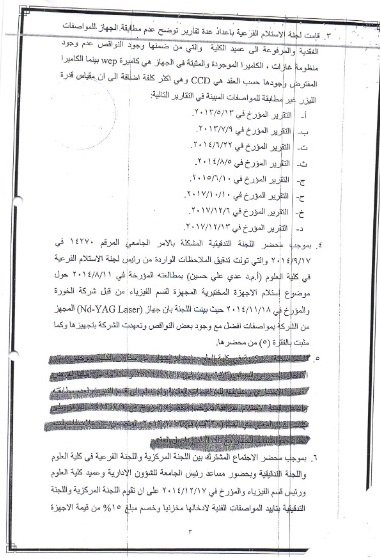 ٣. قامت لجنة الاستلام الفرعية باعداد عدة تقارير توضح عدم مطابقة الجهاز للمواصفات
العقدية والمرفوعة الى عميد الكلية والتي من ضمنها وجود النواقص عدم وجود
منظومة غازات ، الكاميرا الموجودة والمثبتة في الجهاز هي كاميرة wep بينما الكاميرا
المفترض وجودها حسب العقد هي CCD وهي اكثر كلفة اضافة الى ان مقياس قدرة
الليزر غير مطابقة للمواصفات المبينة في التقارير التالية:
أ- التقرير المؤرخ في ٢٠١٣/٥/١٣.
ب- التقرير المؤرخ في ٢٠١٣/٧/٩.
ت- التقرير المؤرخ في ٢٠١٤/٦/٢٢.
ث- التقرير المؤرخ في ٢٠١٤/٨/٥.
ج- التقرير المؤرخ في ٢٠١٥/٦/١٠.
ح- التقرير المؤرخ في ٢٠١٧/١٠/١٠.
خ- التقرير المؤرخ في ٢٠١٧/١٢/٦.
د- التقرير المؤرخ في ٢٠١٧/١٢/١٣.
٤. بموجب محضر اللجنة التدقيقية المشكلة بالأمر الجامعي المرقم ١٤٢٧٠ في
٢٠١٤/٩/١٧ والتي تولت تدقيق الملاحظات الواردة من رئيس لجنة الاستلام الفرعية
في كلية العلوم (أ.م.د عدي علي حسين) بمطالعته المؤرخة في ٢٠١٤/٨/١١ حول
موضوع إستلام الاجهزة المختبرية المجهزة لقسم الفيزياء من قبل شركة الخورة
والمؤرخ في ٢٠١٤/١١/١٨ حيث بينت اللجنة بان جهاز (Nd-YAG Laser) المجهز
من الشركة بمواصفات افضل مع وجود بعض النواقص وتعهدت الشركة بتجهيزها وكما
مثبت بالفقرة (٥) من محضرها.
٥.
٦. بموجب محضر الاجتماع المشترك بين اللجنة المركزية واللجنة الفرعية في كلية العلوم
واللجنة التدقيقية وبحضور مساعد رئيس الجامعة للشؤون الادارية وعميد كلية العلوم
ورئيس قسم الفيزياء والمؤرخ في ٢٠١٤/١٢/١٧ على ان تقوم اللجنة المركزية واللجنة
التدقيقية بتاييد المواصفات الفنية لادخالها مخزنيا وخصم مبلغ ١٥% من قيمة الاجهزة
٣